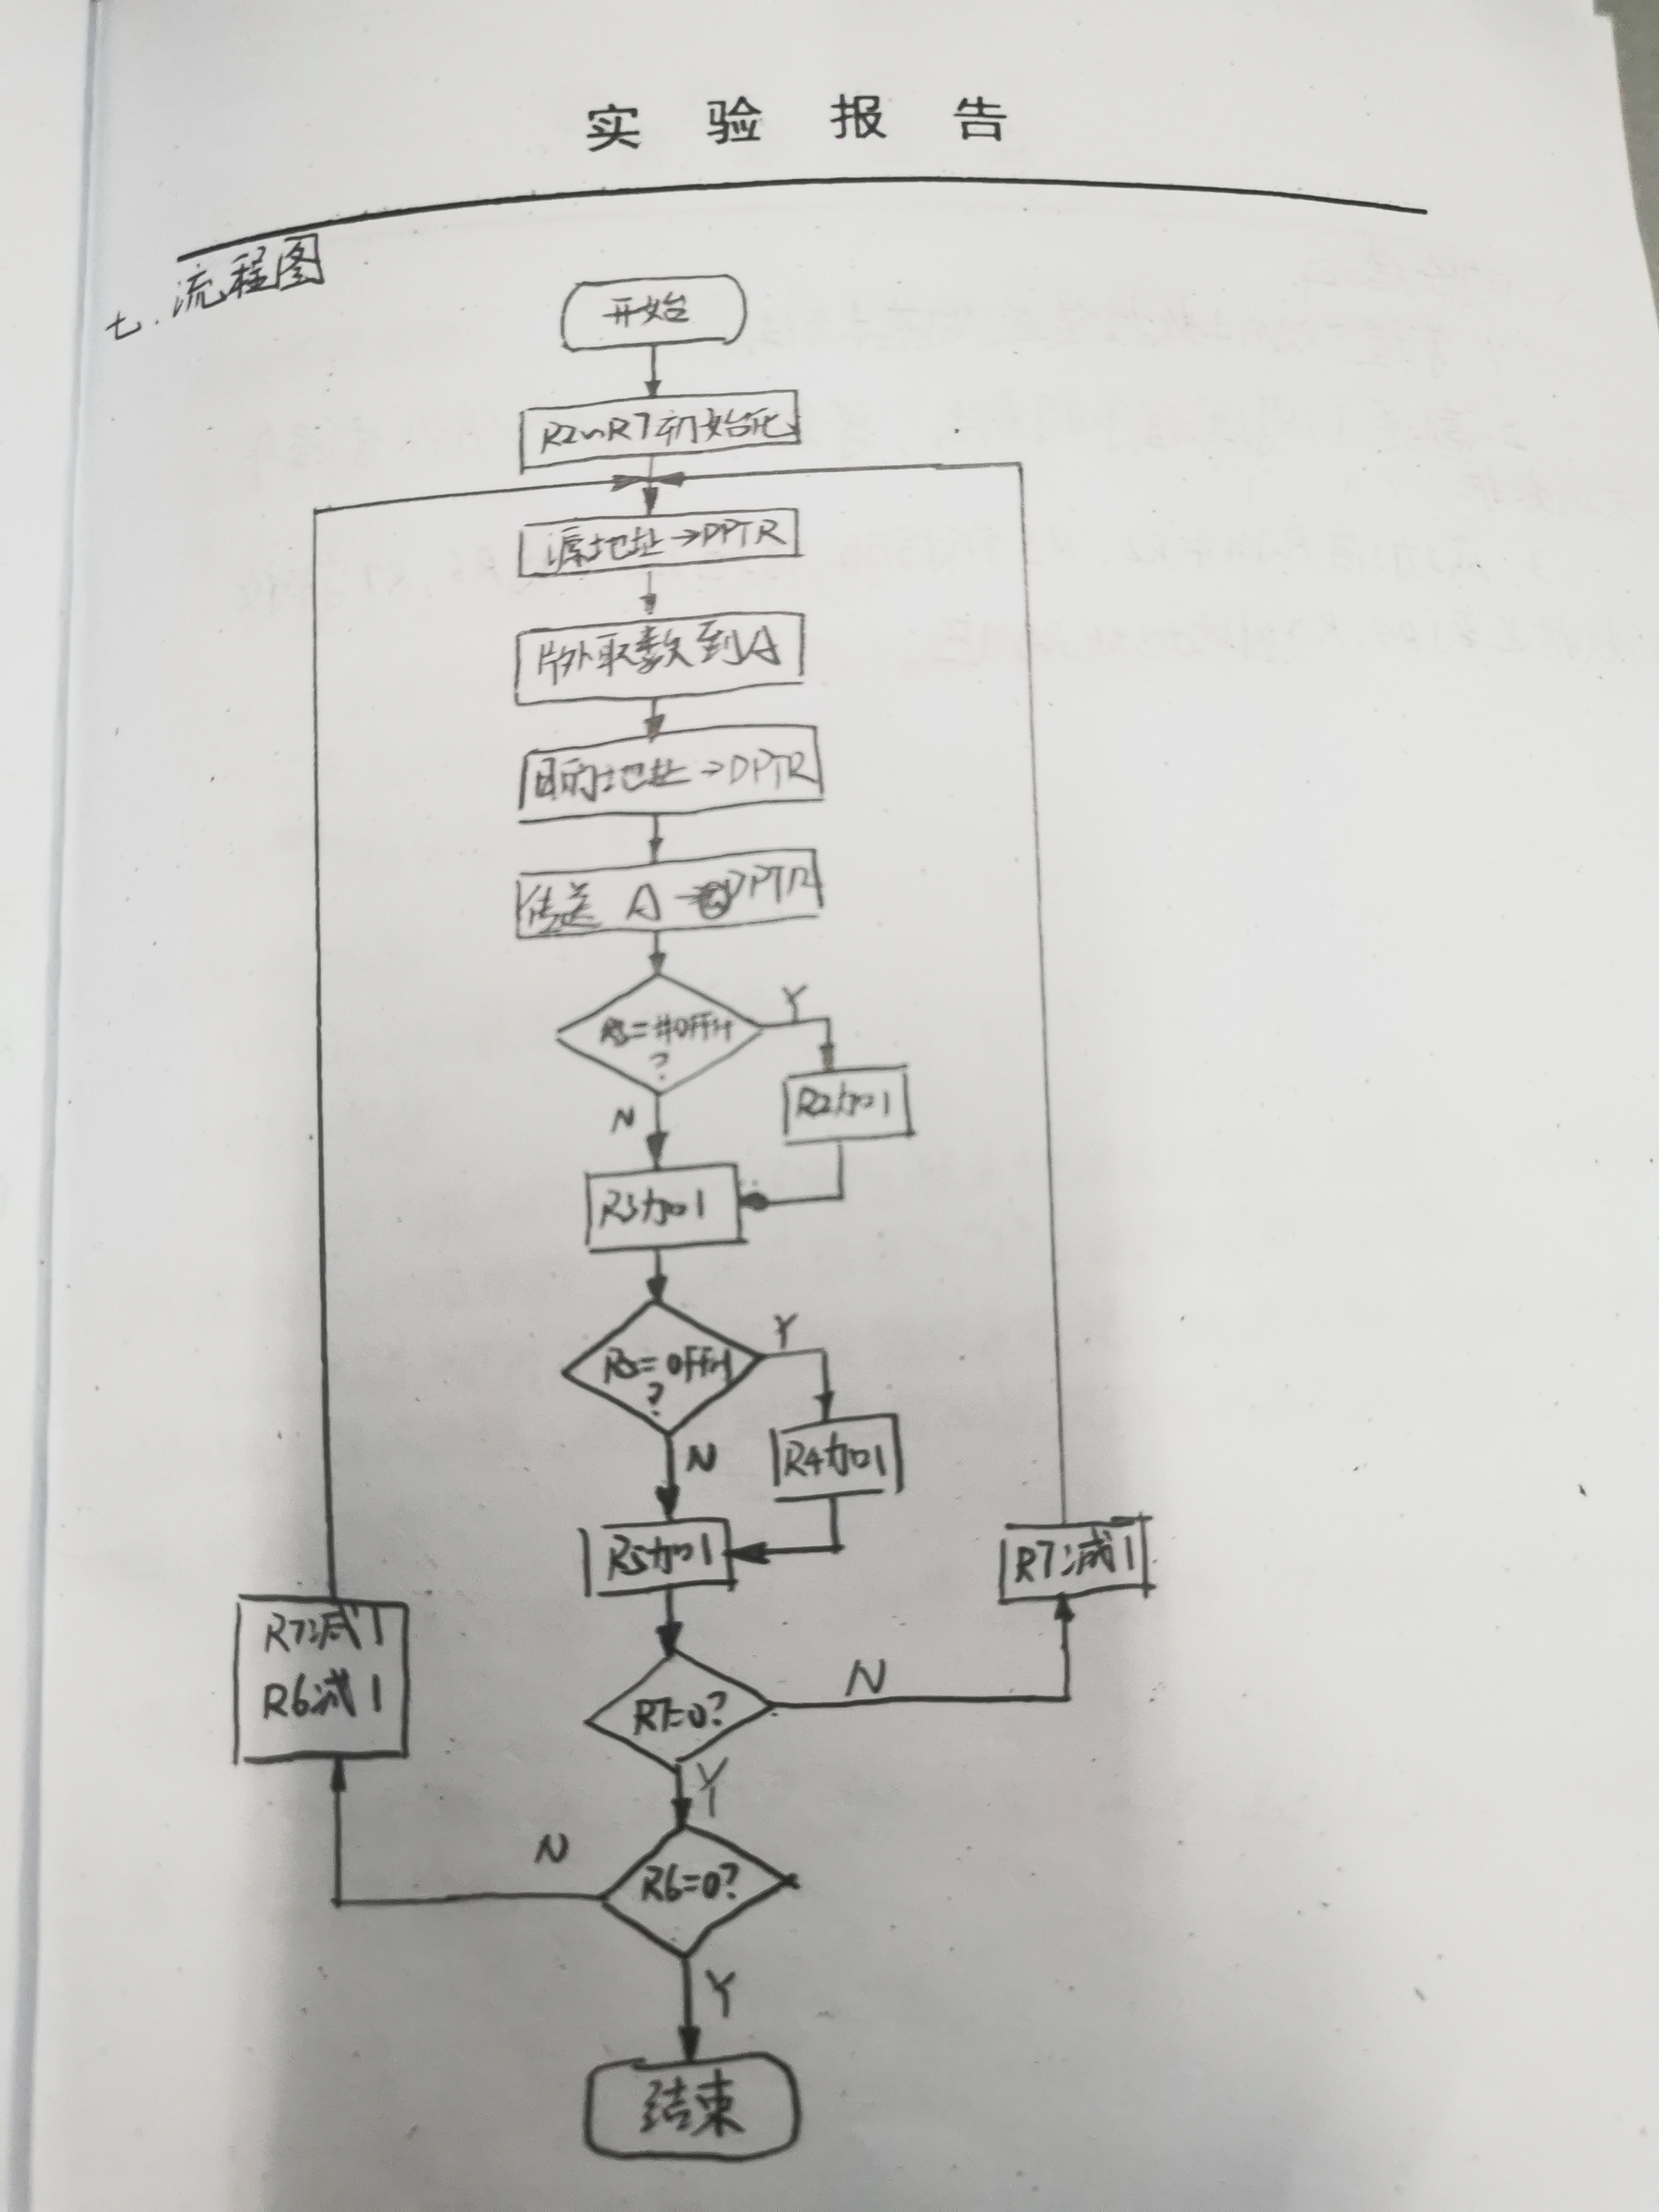 实验报告
七.流程图
开始
R2~R7初始化
源地址→DPTR
片外取数到A
目的地址→DPTR
传送 A→@DPTR
R3=#0FFH
?
Y
R2加1
N
R3加1
R5=0FFH
?
Y
R4加1
N
R5加1
R7减1
R7减1
R6减1
R7=0?
N
Y
N
R6=0?
Y
结束